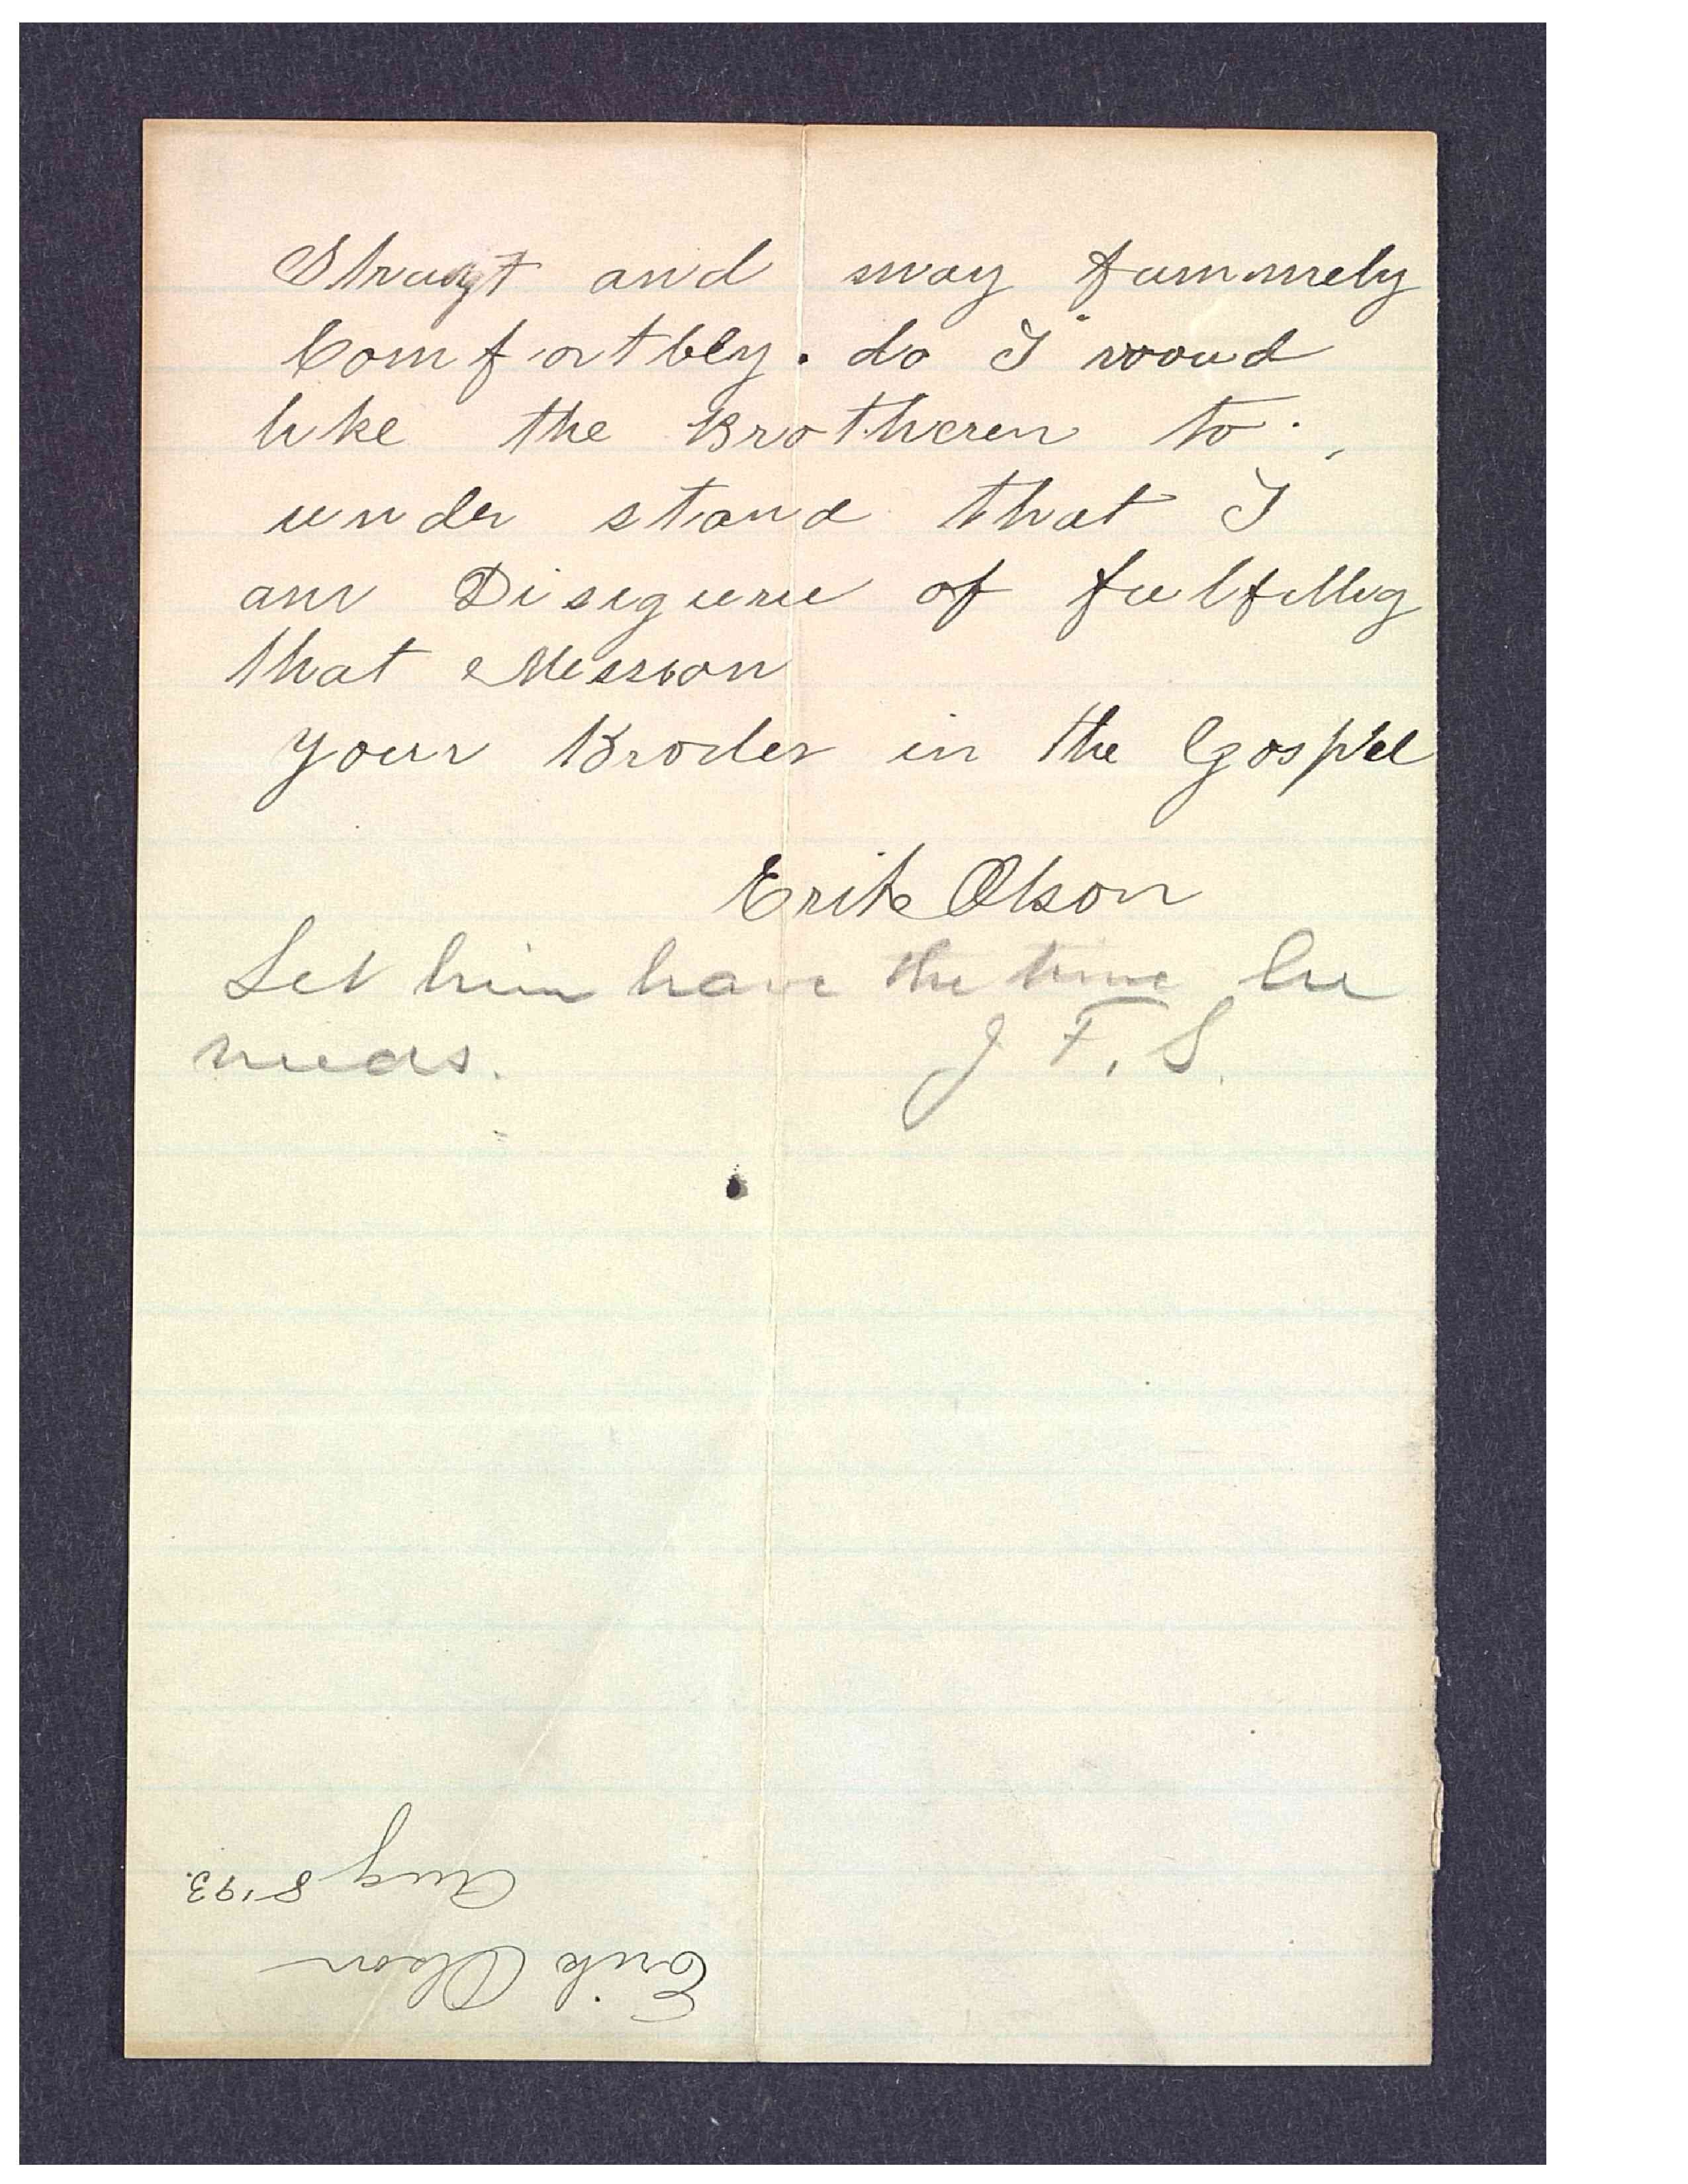 Strayt and may fammely
Comfortbly. do I wooud
like the Brotheren to
under stand that I
am Disigurue of fulfillig
that Mission
your Broder in the Gospel
Erik Olson
Let him have the time he
needs. J. F. S.
Erik Olson
Aug 8 '93.